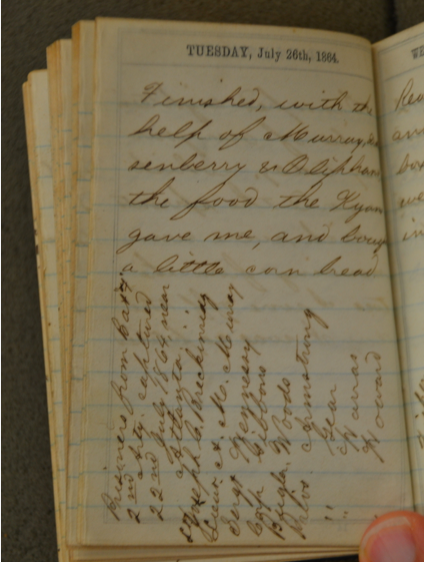 TUESDAY, July 26th, 1864.
Finished, with the
help of Murray,
senberry & Oliphan
the food the Ryan
gave me, and boug
a little corn bread
Prisoners from Batty
2nd Arty. captured
22nd July 1864 near
Atlanta.
Joseph C. Breckinridge
Lieut A. M. Murray
Sergt Hennessy
Corp Gibbons
Bugler Woods
Privs Armstrong
" Gear
" Howard